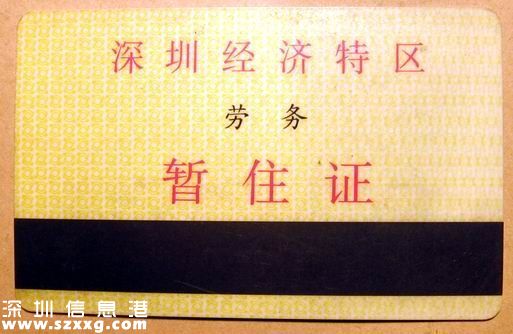 深圳经济特区
劳务
暂住证
深圳信息港
www.szxxg.com